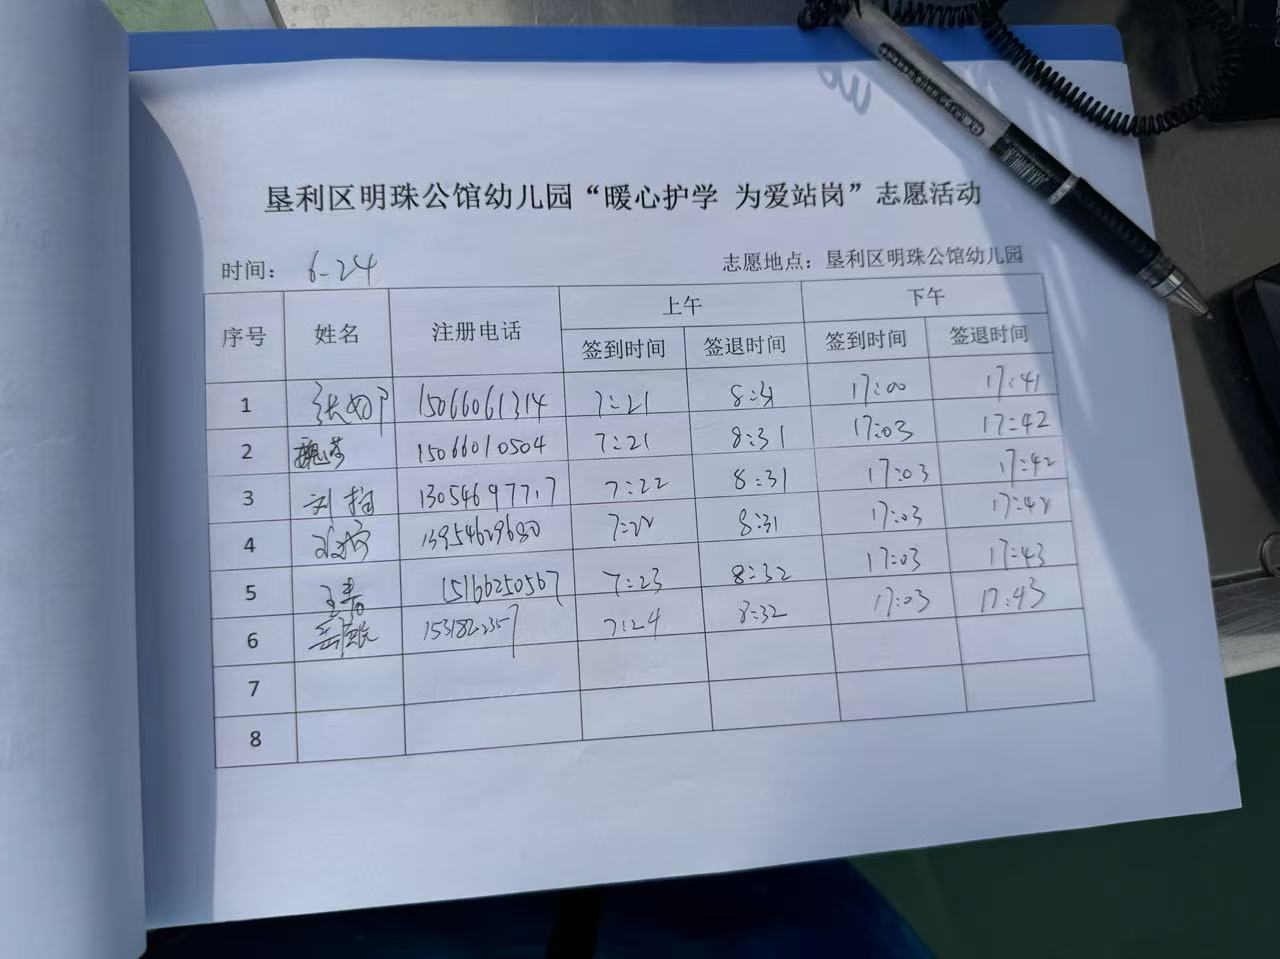 垦利区明珠公馆幼儿园“暖心护学 为爱站岗”志愿活动
时间： 6-24 志愿地点：垦利区明珠公馆幼儿园
序号 姓名 注册电话 上午 下午
签到时间 签退时间 签到时间 签退时间
1 15066061314 7:21 8:31 17:00 17:41
2 魏 15066010504 7:21 8:31 17:03 17:42
3 刘 13054697717 7:22 8:31 17:03 17:42
4 13954629680 7:22 8:31 17:03 17:42
5 王 15166250567 7:23 8:32 17:03 17:43
6 7:24 8:32 17:03 17:43
7
8